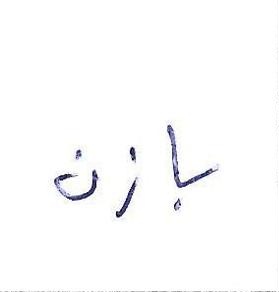 بازن